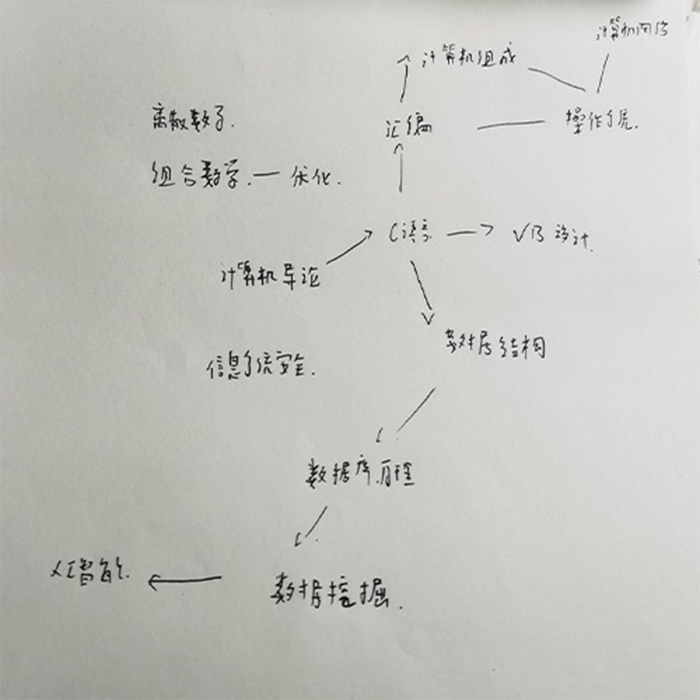 计算机网络
计算机组成
离散数学.
汇编
操作系统.
组合数学. — 优化.
C语言
VB设计.
计算机导论
数据结构
信息系统安全.
数据库原理
人工智能.
数据挖掘.